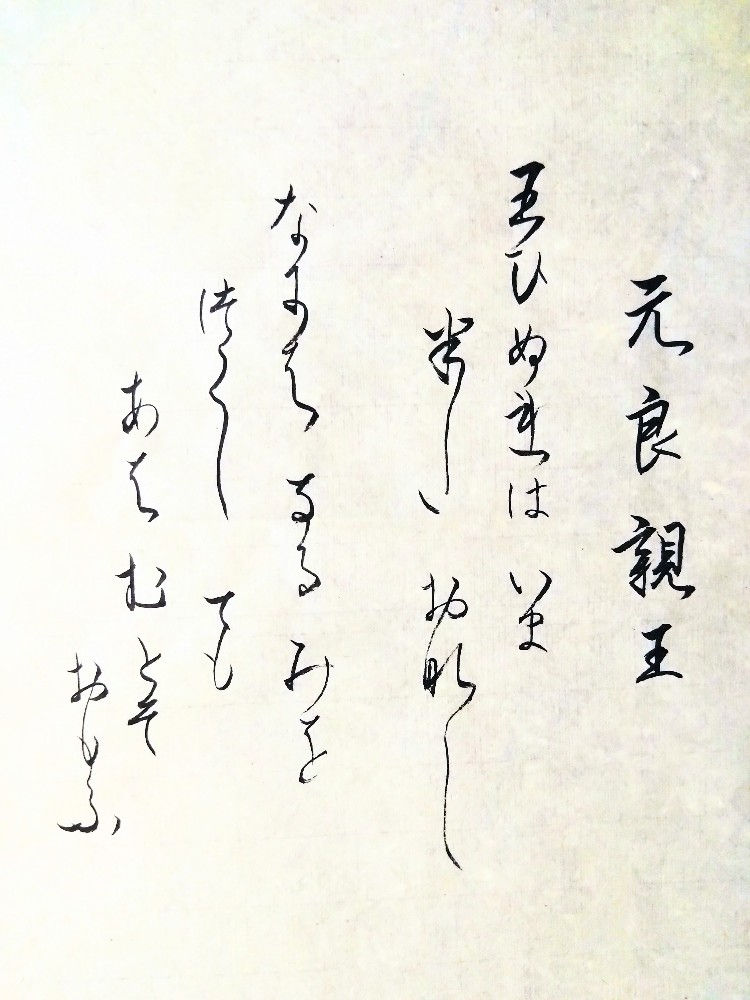 元良親王
王ひぬれはいま
者しおなし
なにはなるみを
つくしても
あはむとそ
おもふ